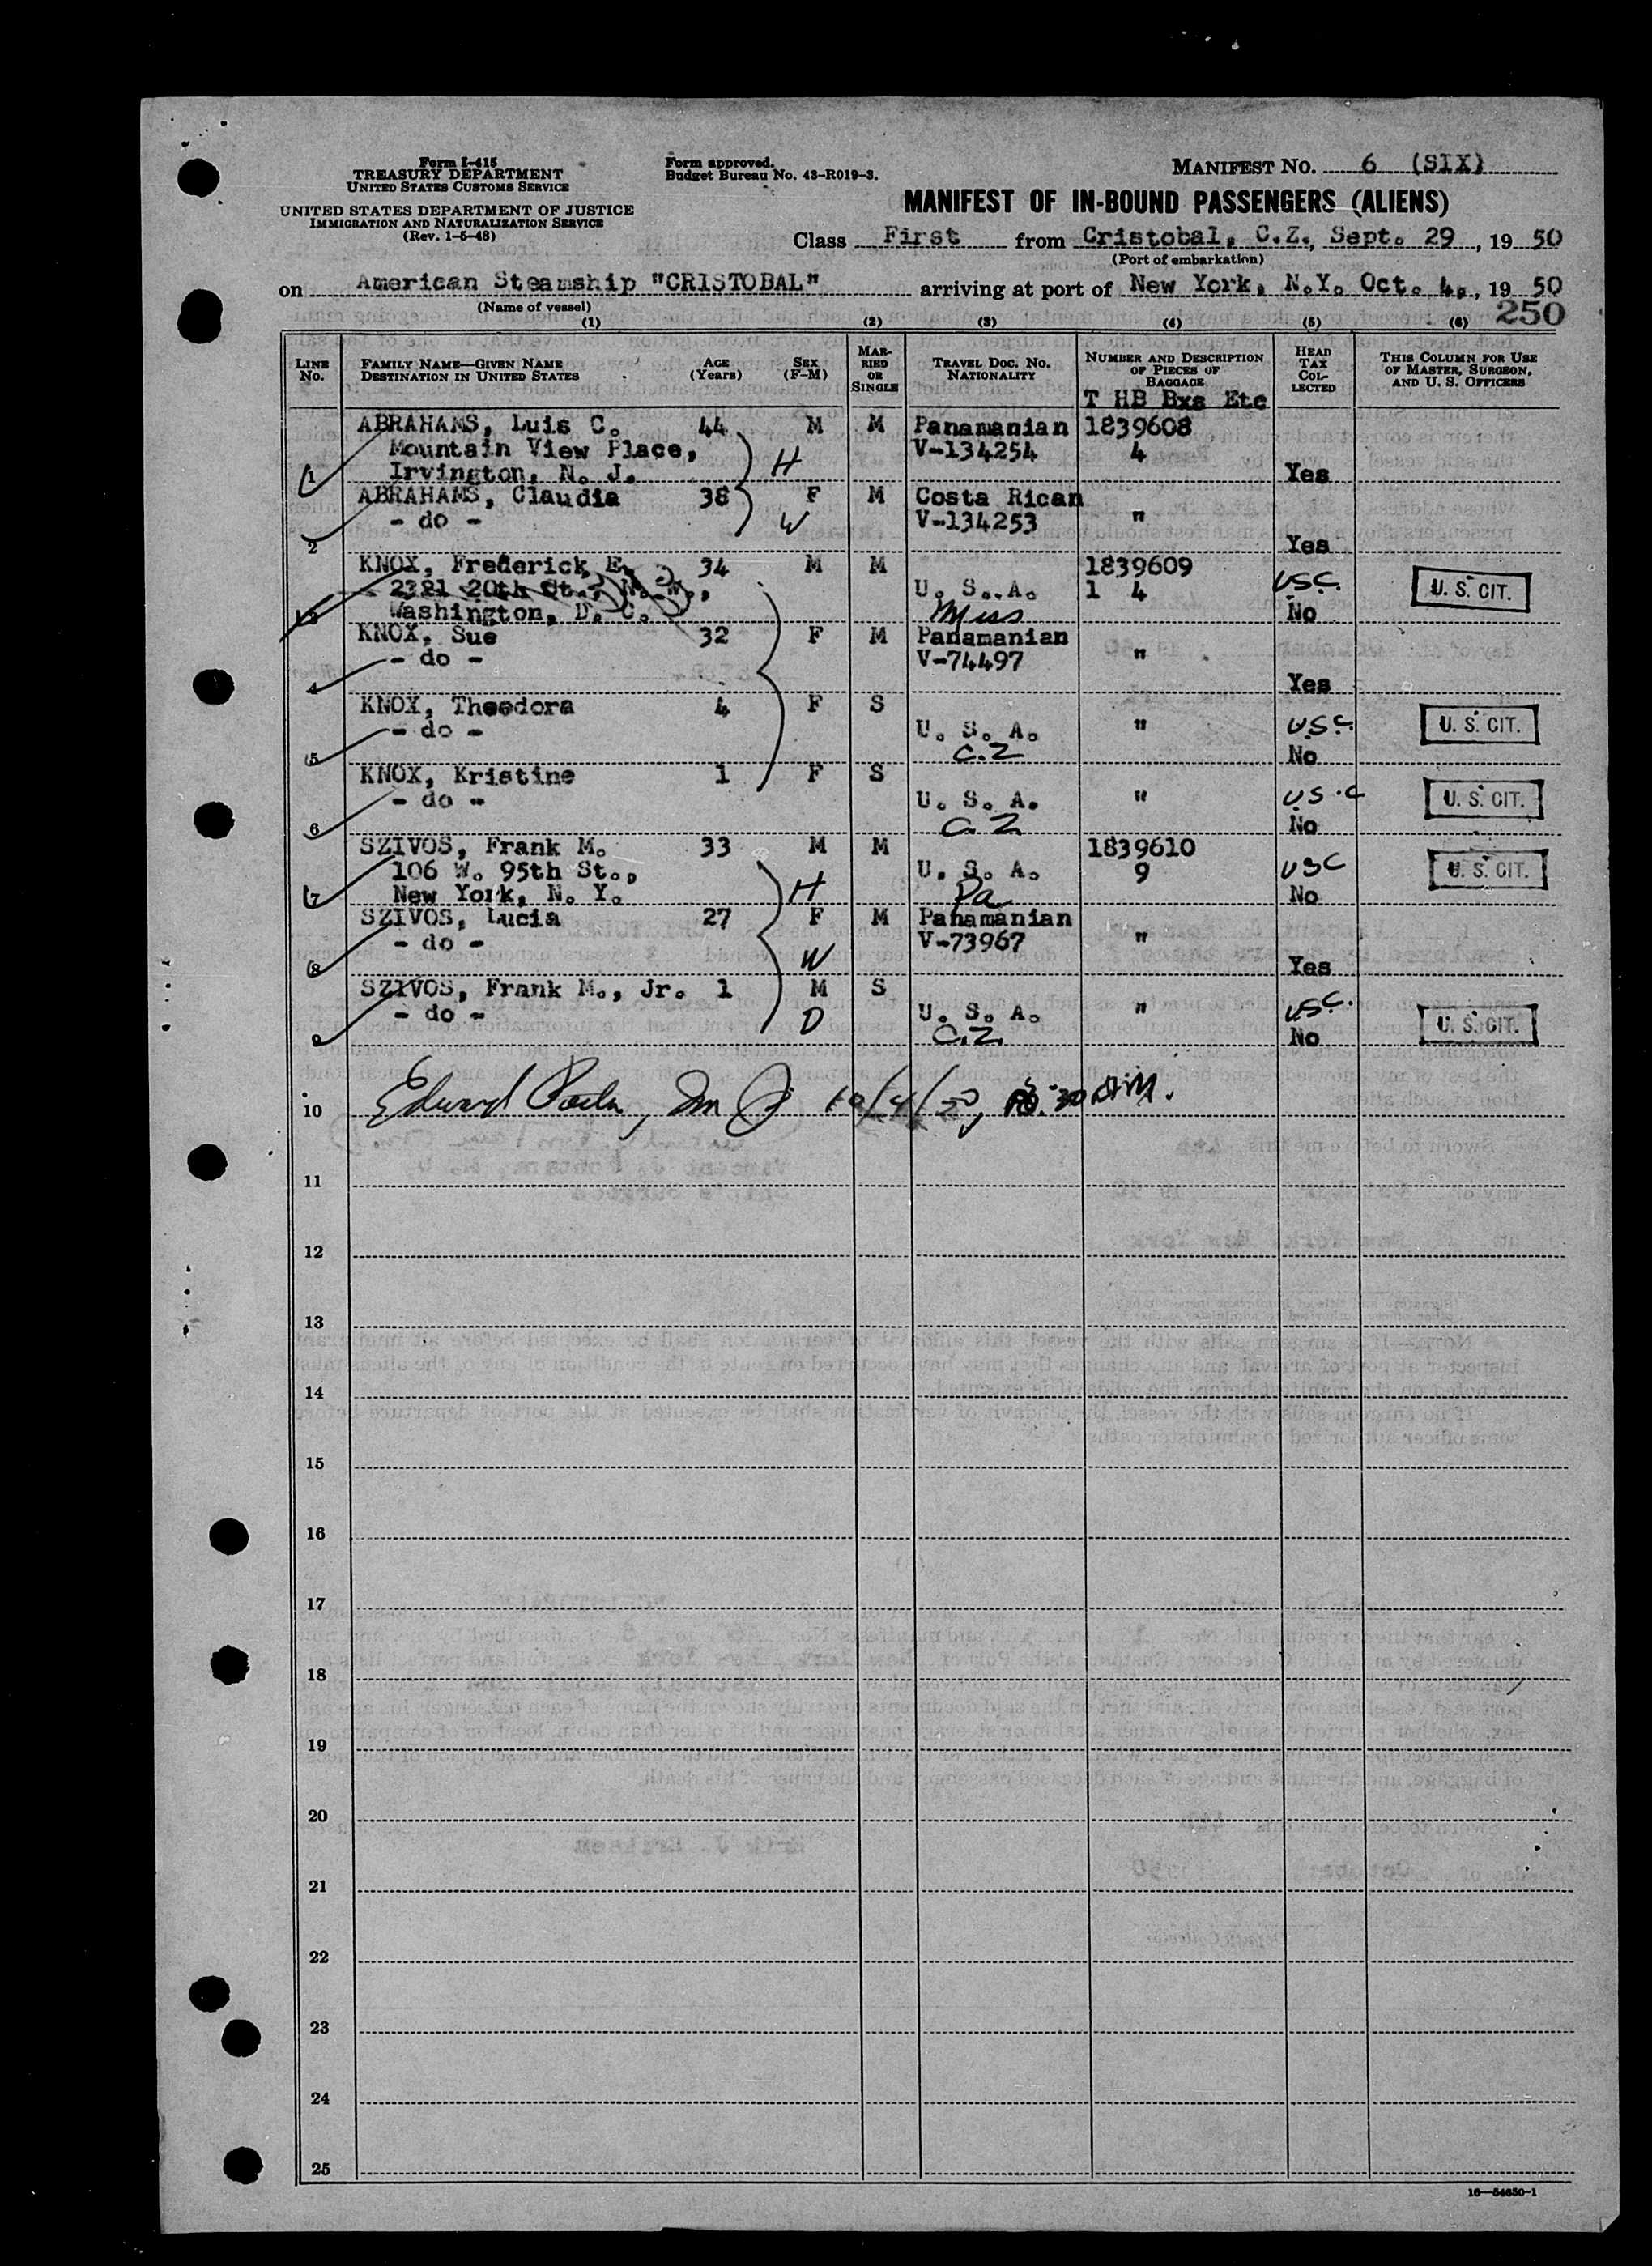 Form I-415
TREASURY DEPARTMENT
UNITED STATES CUSTOMS SERVICE
UNITED STATES DEPARTMENT OF JUSTICE
IMMIGRATION AND NATURALIZATION SERVICE
(Rev. 1-5-48)
Form approved.
Budget Bureau No. 43-R019-3.
MANIFEST NO. 6 (SIX)
MANIFEST OF IN-BOUND PASSENGERS (ALIENS)
Class First from Cristobal, C.Z., Sept. 29, 1950
(Port of embarkation)
on American Steamship "CRISTOBAL" arriving at port of New York, N.Y. Oct. 4., 1950
(Name of vessel)
250
(1) (2) (3) (4) (5) (6)
LINE No.
FAMILY NAME—GIVEN NAME
DESTINATION IN UNITED STATES
AGE (Years)
SEX (F-M)
MARRIED OR SINGLE
TRAVEL DOC. NO.
NATIONALITY
NUMBER AND DESCRIPTION OF PIECES OF BAGGAGE
T HB Bxs Etc
HEAD TAX COLLECTED
THIS COLUMN FOR USE OF MASTER, SURGEON, AND U. S. OFFICERS
ABRAHAMS, Luis C. 44 M M Panamanian 1839608
Mountain View Place, H V-134254 4
1 Irvington, N. J. Yes
ABRAHAMS, Claudia 38 F M Costa Rican
- do - W V-134253 "
2 Yes
KNOX, Frederick E. 34 M M 1839609
2321 20th St., N. W., U. S. A. 1 4 USC. U. S. CIT.
3 Washington, D. C. Miss No
KNOX, Sue 32 F M Panamanian
- do - V-74497 "
4 Yes
KNOX, Theodora 4 F S
- do - U. S. A. " U.S.C. U. S. CIT.
5 C.Z No
KNOX, Kristine 1 F S
- do - U. S. A. " U.S.C U. S. CIT.
6 C.Z No
SZIVOS, Frank M. 33 M M 1839610
106 W. 95th St., U. S. A. 9 USC U. S. CIT.
7 New York, N. Y. H Pa No
SZIVOS, Lucia 27 F M Panamanian
- do - W V-73967 "
8 Yes
SZIVOS, Frank M., Jr. 1 M S
- do - D U. S. A. " USC. U. S. CIT.
9 C.Z. No
10 Edward 10/4/50
11
12
13
14
15
16
17
18
19
20
21
22
23
24
25
16—54650-1